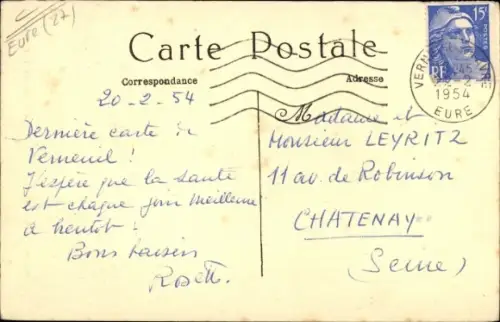 Eure (27)
Carte Postale
Correspondance
Adresse
15F
POSTES
RF
1954
EURE
20-2-54
Dernière carte de
Verneuil !
J'espère que la santé
est chaque jour meilleure
à bientôt !
Bons baisers
Madame et
Monsieur LEYRITZ
11 av. de Robinson
CHATENAY
(Seine)